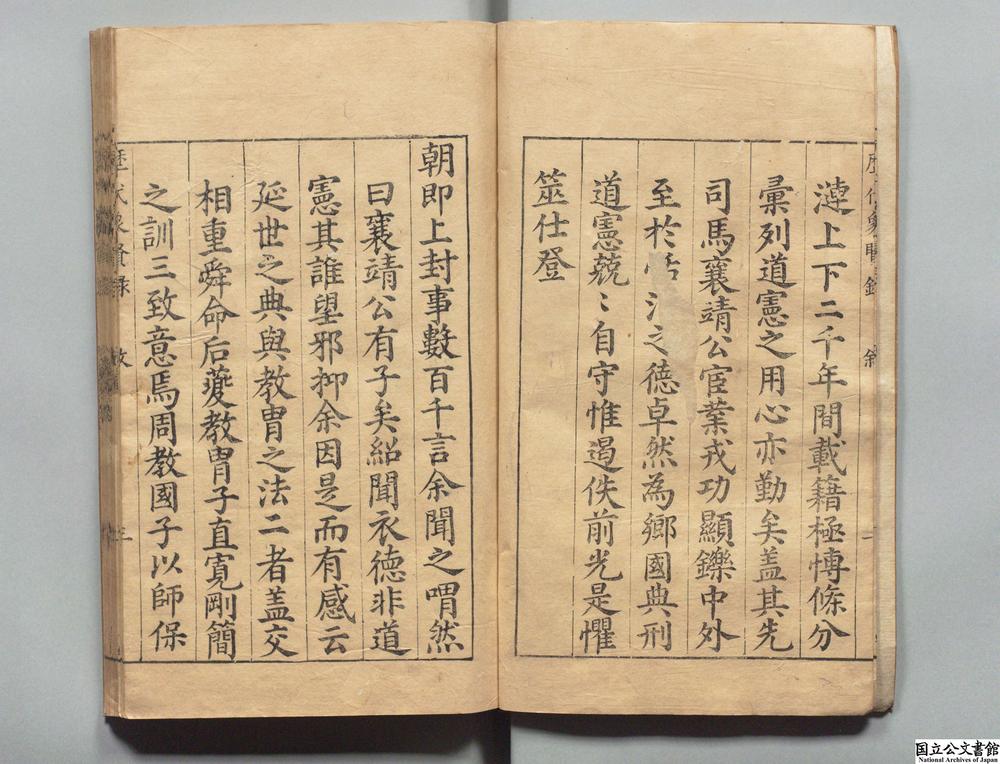 漣上下二千年間載籍極愽條分
彙列道憲之用心亦勤矣盖其先
司馬襄靖公宦業戎功顯鑠中外
至於 之德卓然為鄉國典刑
道憲兢〻自守惟遏佚前光是懼
筮仕登
朝即上封事數百千言余聞之喟然
曰襄靖公有子矣紹聞衣德非道
憲其誰望邪抑余因是而有感云
延世之典與教胄之法二者盖交
相重舜命后夔教胄子直寬剛簡
之訓三致意焉周教國子以師保
歷代象賢録
敘
二
歷代象賢録
敘
三
国立公文書館
National Archives of Japan